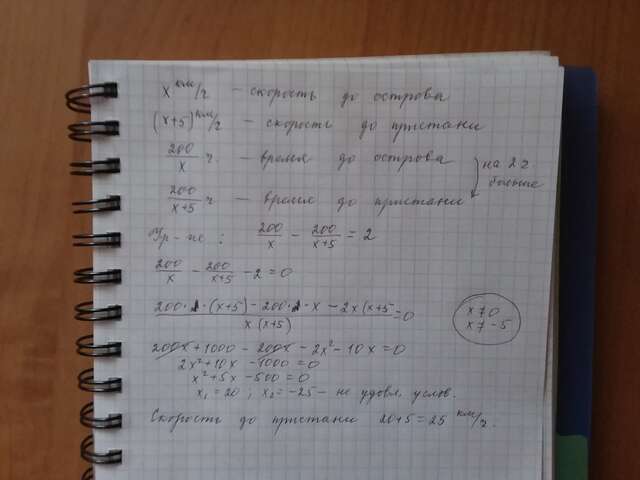 x км/ч — скорость до острова
(x+5) км/ч — скорость до пристани
200/x ч — время до острова
на 2 ч больше
200/x+5 ч — время до пристани
Ур-ие: 200/x - 200/x+5 = 2
200/x - 200/x+5 - 2 = 0
200 · (x+5) - 200 · x - 2x(x+5 / x(x+5) = 0
x ≠ 0
x ≠ -5
200x + 1000 - 200x - 2x² - 10x = 0
2x² + 10x - 1000 = 0
x² + 5x - 500 = 0
x₁ = 20 ; x₂ = -25 — не удовл. услов.
Скорость до пристани 20+5 = 25 км/ч.